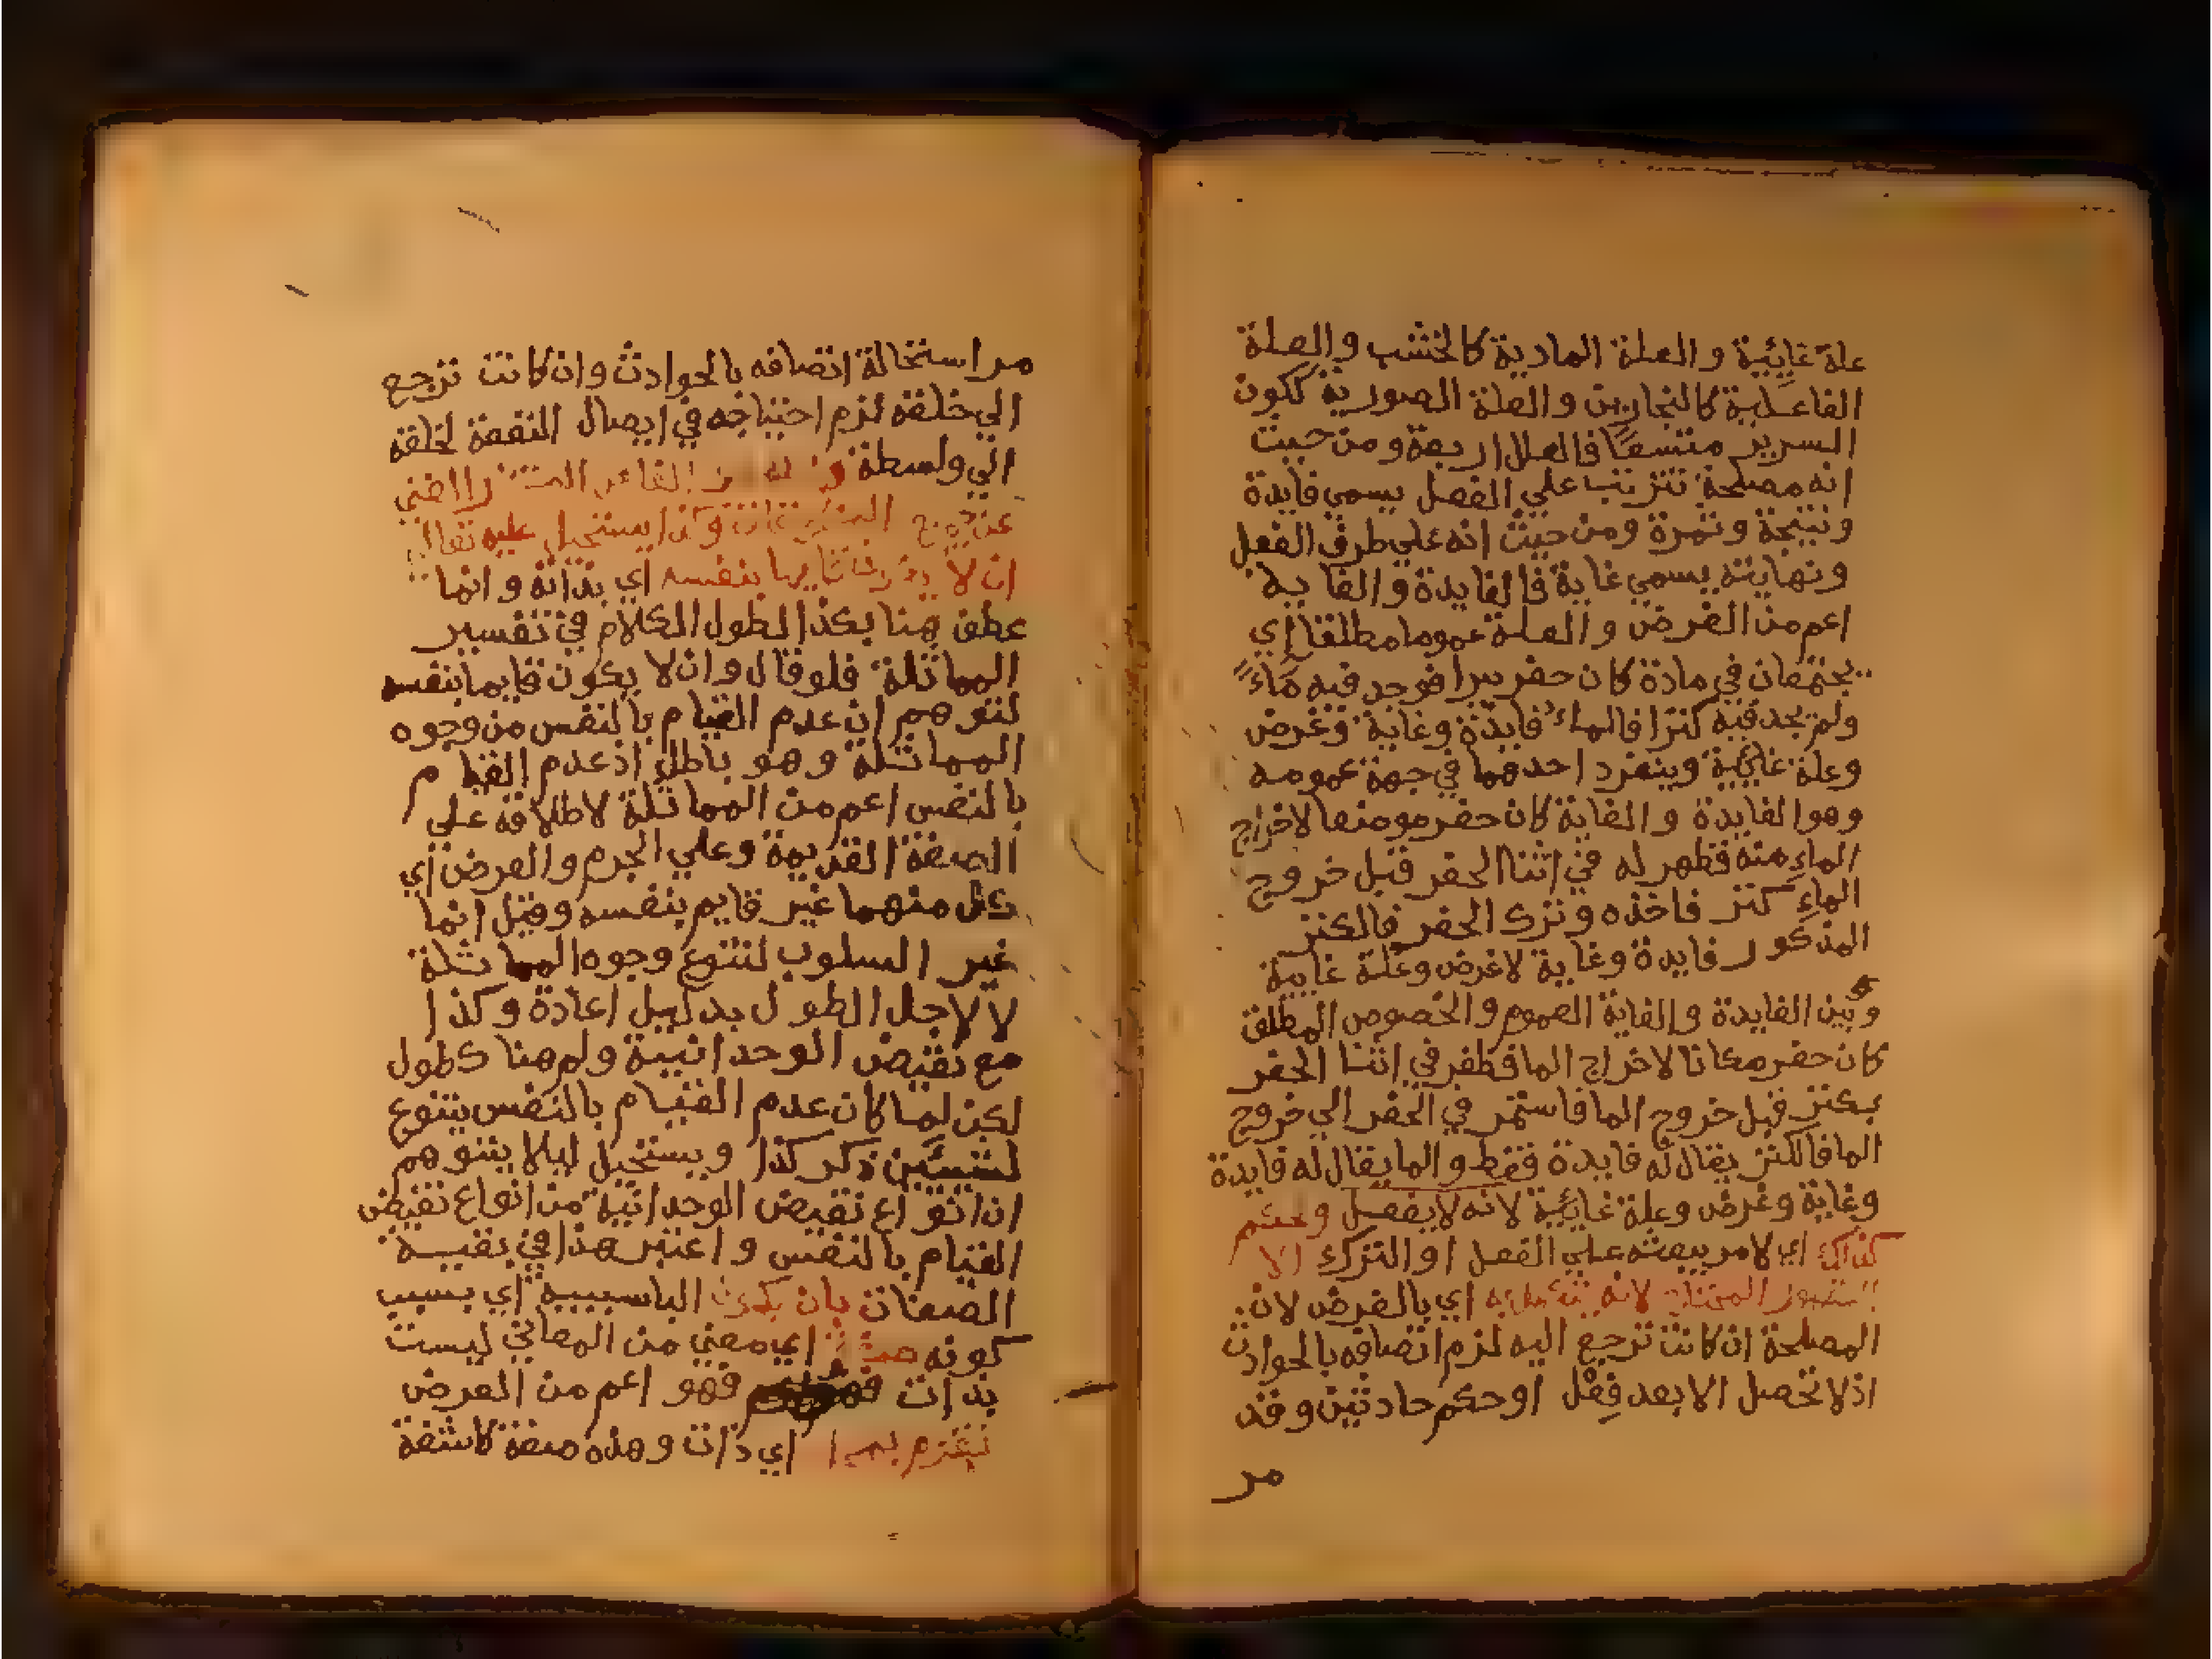 علة غايئية والعلة المادية كالخشب والعلة
الفاعلية كالنجارين والعلة الصورية ككون
السرير متسعا فالعلل اربعة ومن حيث
انه مصلحة تترتب علي الفعل يسمي فايدة
ونتيجة وثمرة ومن حيث انه علي طرف الفعل
ونهايته يسمي غاية فالفايدة والغاية
اعم من الغرض والعلة عموما مطلقا اي
يجتمعان في مادة كان حفر بيرا فوجد فيه مَاءً
ولم يجد فيه كنزا فالماء فايدة وغاية وغرض
وعلة غائية وينفرد احدهما في جهة عمومه
وهو الفايدة والغاية كان حفر موضعا لاخراج
الماء منه فظهر له في اثنا الحفر قبل خروج
الماءِ كنز فاخذه وترك الحفر فالكنز
المذكور فايدة وغاية لا غرض وعلة غايية
وبين الفايدة والغاية العموم والخصوص المطلق
كان حفر مكانا لاخراج الما فظفر في اثنا الحفر
بكنز قبل خروج الما فاستمر في الحفر الي خروج
الما فالكنز يقال له فايدة فقط والما يقال له فايدة
وغاية وغرض وعلة غائية لانه لا يفعل
كذلك اي لامر يبعثه علي الفعل او الترك الا
لانه اي بالغرض لان
المصلحة ان كانت ترجع اليه لزم اتصافه بالحوادث
اذ لا تحصل الا بعد فِعْل او حكم حادثين وقد
مر
مر استحالة اتصافه بالحوادث وان كانت ترجع
الي خلقه لزم احتياجه في ايصال المنفعة لخلقه
الي واسطة
وكذا يستحيل عليه تعالي
ان لا يكون قايما بنفسه اي بذاته وانما
عطف هنا بكذا لطول الكلام في تفسير
المماثلة فلو قال وان لا يكون قايما بنفسه
لتوهم ان عدم القيام بالنفس من وجوه
المماثلة وهو باطل اذ عدم القيام
بالنفس اعم من المماثلة لاطلاقه علي
الصفة القديمة وعلي الجرم والعرض اي
كل منهما غير قايم بنفسه وقيل انما
غير السلوب لتنوع وجوه المماثلة
لا لاجل الطول بدليل اعادة وكذا
مع نقيض الوحدانية ولم هنا كطول
لكن لما كان عدم القيام بالنفس يتنوع
لشيئين ذكر كذا ويستحيل ليلا يتوهم
ان انواع نقيض الوحدانية من انواع نقيض
القيام بالنفس واعتبر هذا في بقيه
الصفات بان يكون الباسببية اي بسبب
كونه صفة اي معني من المعاني ليست
بذات فهو اعم من العرض
اي ذات وهذه صفة كاشفة